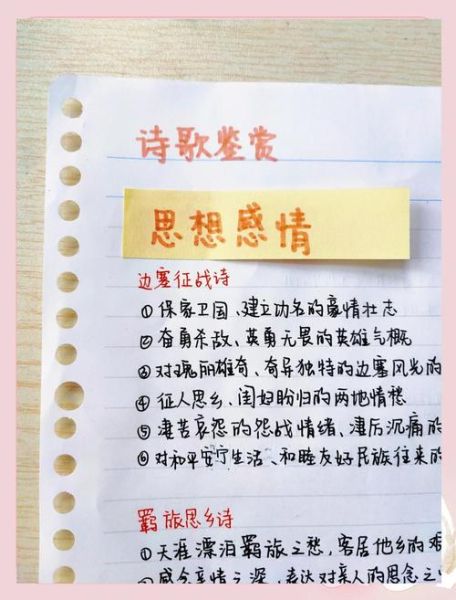 诗歌鉴赏
思想感情
边塞征战诗
①保家卫国、建立功名的豪情壮志
②奋勇杀敌、英勇无畏的英雄气概
③对瑰丽雄奇、奇异独特的边塞风光的
④征人思乡、闺妇盼归的两地情愁
⑤凄苦哀怨的怨战情绪、凄厉沉痛的
⑥对和平安宁生活、和睦友好民族往来的
羁旅思乡诗
①天涯漂泊羁旅之愁,客居他乡的艰
②感念亲情之深,表达对亲人的思念之